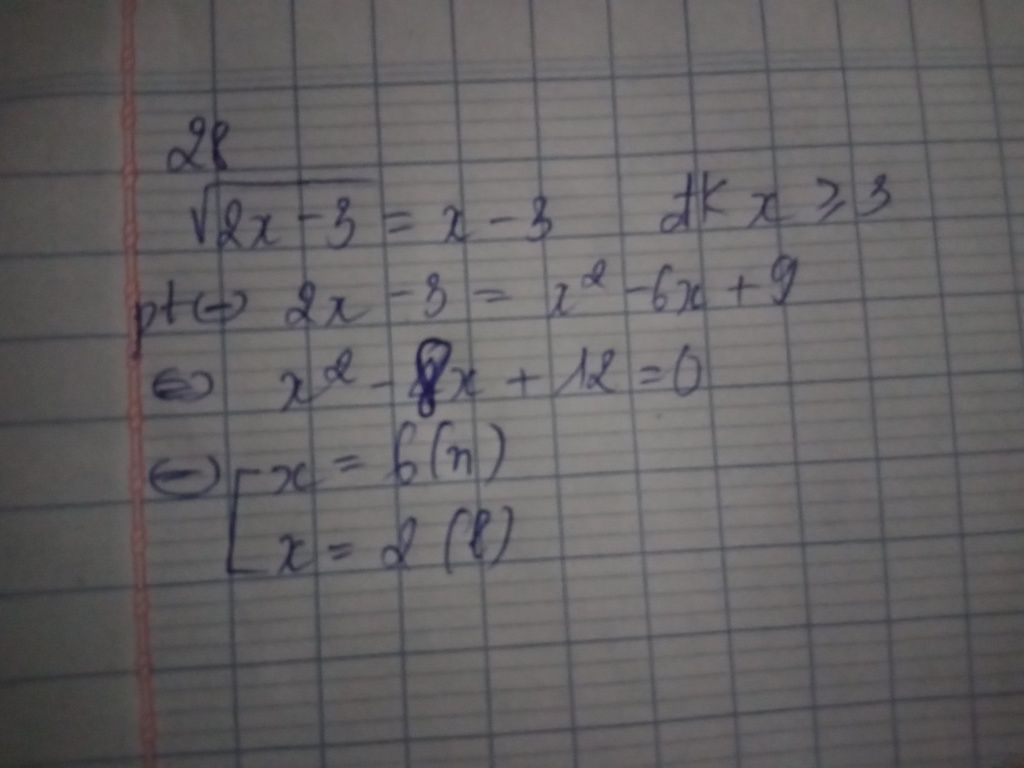 28
√2x - 3 = x - 3 đk x ≥ 3
pt⇔ 2x - 3 = x² - 6x + 9
⇔ x² - 8x + 12 = 0
⇔ [ x = 6 (n)
x = 2 (l)